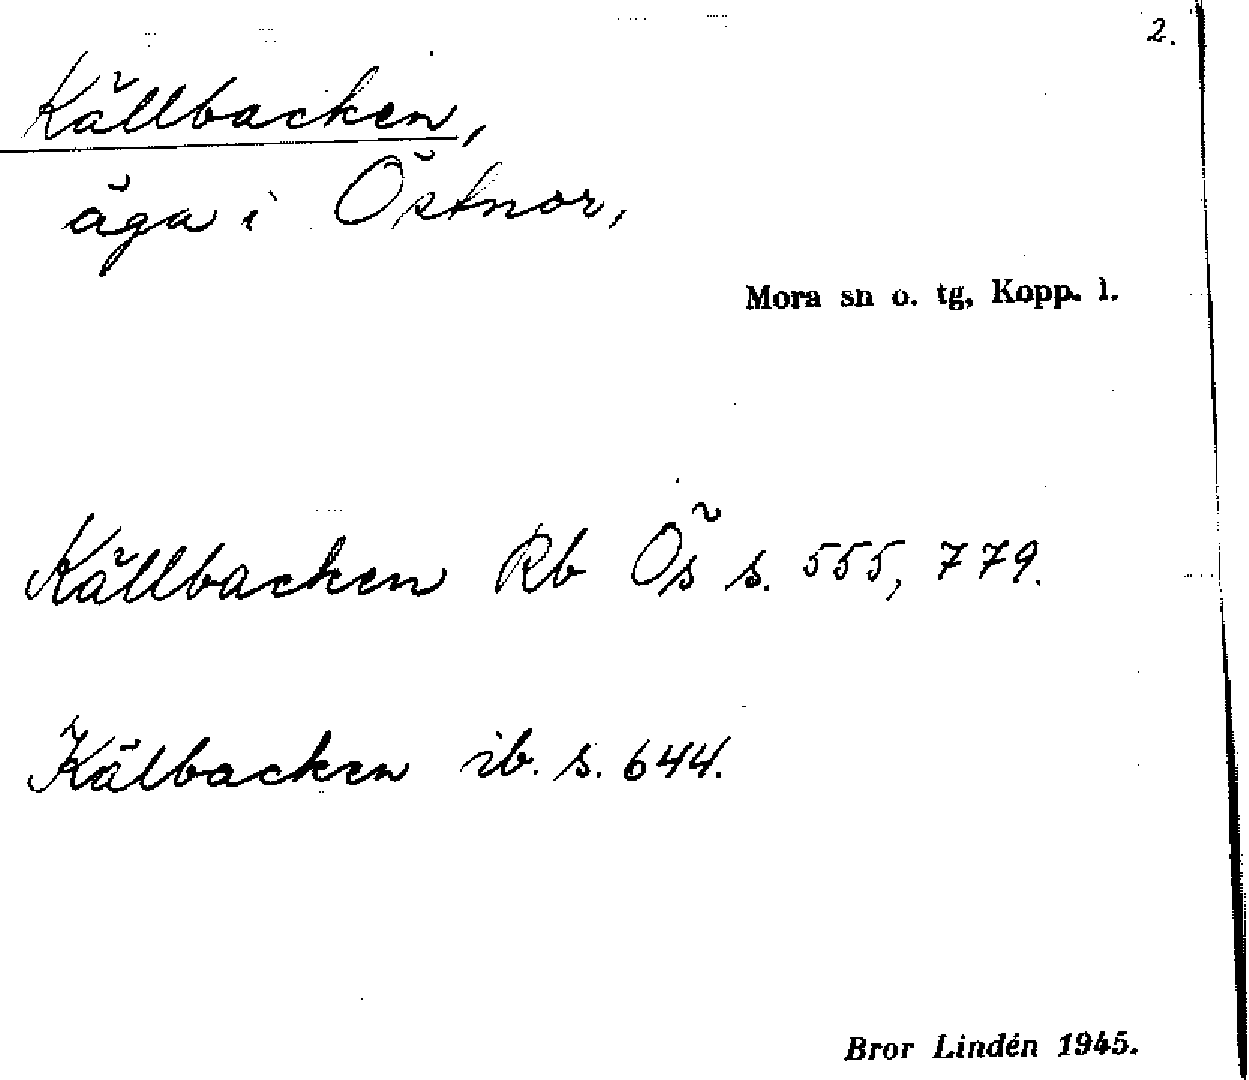 2.
Källbacken,
äga i Östnor,
Mora sn o. tg, Kopp. l.
Källbacken Rb Ös s. 555, 779.
Kälbacken ib. s. 644.
Bror Lindén 1945.